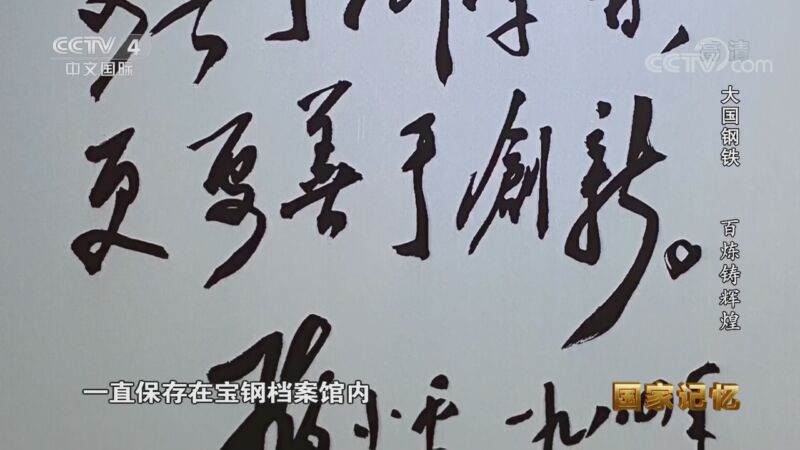 CCTV 4
中文国际
高清
CCTV.com
大国钢铁 百炼铸辉煌
更要善于創新。
鄧小平 一九八四年
一直保存在宝钢档案馆内
国家记忆